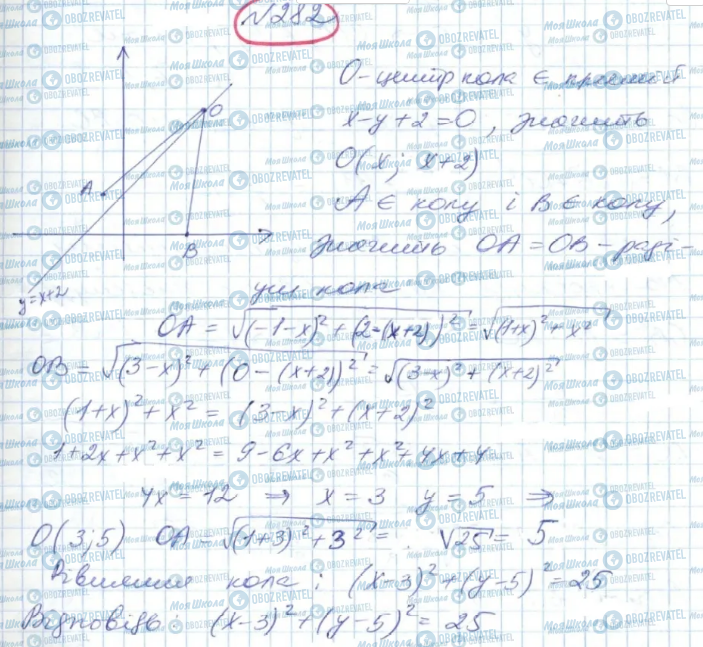 №282
O - центр кола є прямій
x-y+2=0, значить
O(x; x+2)
A є колу і B є колу,
значить OA = OB - раді-
ус кола
O
A
B
y=x+2
OA = √((-1-x)² + (2-(x+2))²) = √((1+x)² + x²)
OB = √((3-x)² + (0-(x+2))²) = √((3-x)² + (x+2)²)
(1+x)² + x² = (3-x)² + (x+2)²
1+2x+x²+x² = 9-6x+x²+x²+4x+4
4x = 12 ⇒ x = 3 y = 5 ⇒
O(3;5) OA = √((1+3)² + 3²) = √25 = 5
Рівняння кола: (x-3)² + (y-5)² = 25
Відповідь: (x-3)² + (y-5)² = 25
Моя Школа OBOZREVATEL